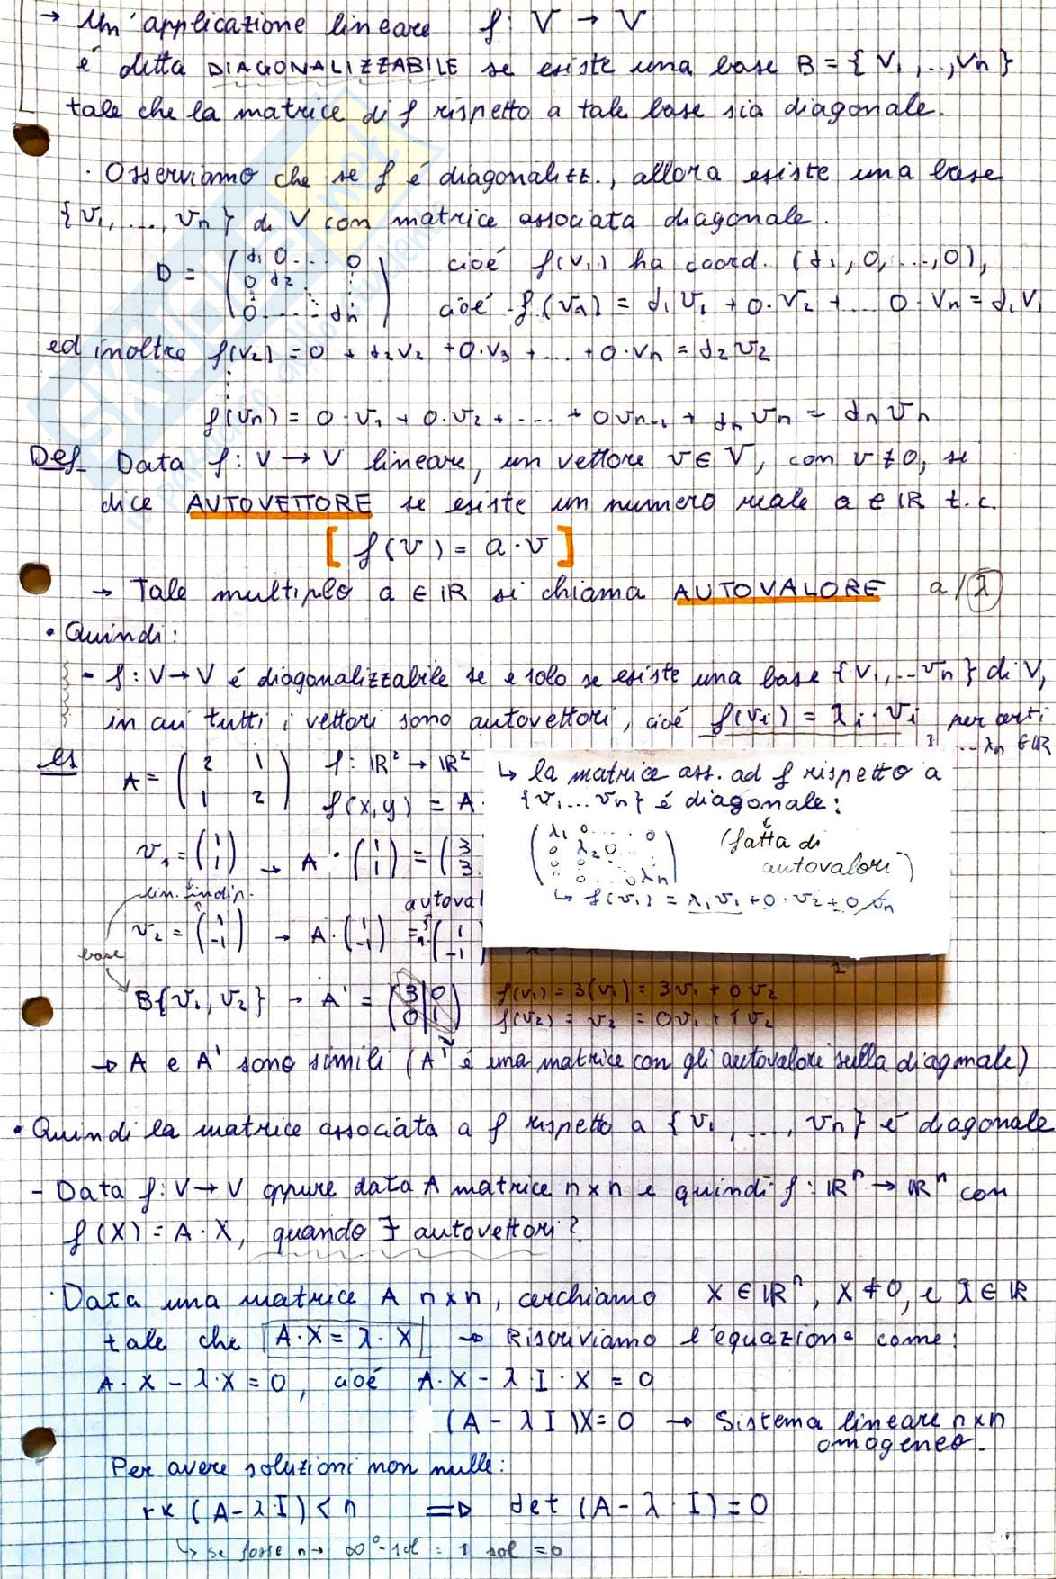 → Un'applicazione lineare f: V → V
é detta DIAGONALIZZABILE se esiste una base B = { V₁, .., Vn }
tale che la matrice di f rispetto a tale base sia diagonale.
· Osserviamo che se f é diagonalizz., allora esiste una base
{ v₁, ..., vn } di V con matrice associata diagonale.
D = ( d₁ 0 ... 0 cioé f(v₁) ha coord. (d₁, 0, ..., 0),
0 d₂ ⋮
0 ... dn ) cioé f(v₁) = d₁v₁ + 0·v₂ + .... 0·vn = d₁v₁
ed inoltre f(v₂) = 0 + d₂v₂ + 0·v₃ + ... + 0·vn = d₂v₂
f(vn) = 0·v₁ + 0·v₂ + ... + 0vn-₁ + dn vn = dn vn
Def Data f: V → V lineare, un vettore v ∈ V, con v ≠ 0, si
dice AUTOVETTORE se esiste un numero reale a ∈ ℝ t.c.
[ f(v) = a·v ]
→ Tale multiplo a ∈ ℝ si chiama AUTOVALORE a/λ
• Quindi:
- f: V → V é diagonalizzabile se e solo se esiste una base { V₁, .. Vn } di V,
in cui tutti i vettori sono autovettori, cioé f(vi) = λi · vi per certi
λ₁ ... λn ∈ ℝ
es A = ( 2 1 f: ℝ² → ℝ²
1 2 ) f(x,y) = A·
↳ la matrice ass. ad f rispetto a
{v₁...vn} é diagonale:
( λ₁ 0 ... 0
0 λ₂ 0 ...
0 0 ... 0 λn )
(fatta di
autovalori)
↳ f(v₁) = λ₁v₁ + 0·v₂ + 0 vn
v₁ = ( 1 1 ) → A · ( 1 1 ) = ( 3 3
lin. indip.
autoval
v₂ = ( 1 -1 ) → A · ( 1 -1 ) = 1· ( 1 -1 )
base
B{v₁, v₂} → A' = ( 3 0 f(v₁) = 3(v₁) = 3v₁ + 0v₂
0 1 ) f(v₂) = v₂ = 0v₁ + 1v₂
→ A e A' sono simili (A' é una matrice con gli autovalori sulla diagonale)
• Quindi la matrice associata a f rispetto a { v₁, ..., vn } é diagonale
- Data f: V → V oppure data A matrice n×n e quindi f: ℝⁿ → ℝⁿ con
f(X) = A·X, quando ∃ autovettori?
· Data una matrice A n×n, cerchiamo X ∈ ℝⁿ, X ≠ 0, e λ ∈ ℝ
tale che A·X = λ·X → Riscriviamo l'equazione come:
A·X - λ·X = 0, cioé A·X - λ·I·X = 0
(A - λI)X = 0 → Sistema lineare n×n
omogeneo.
Per avere soluzioni non nulle:
rk (A - λI) < n ⇒ det (A - λ·I) = 0
↳ se fosse n → ∞⁰-sol = 1 sol = 0